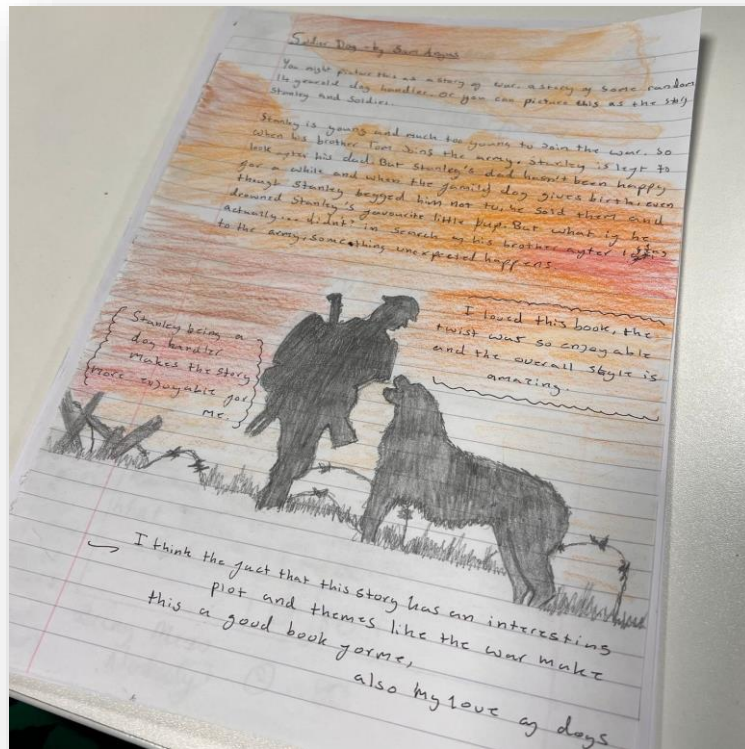 Soldier Dog - by Sam Angus
You might picture this as a story of war. a story of some random
14 year old dog handler. Or you can picture this as the story
Stanley and Soldier.
Stanley is young and much too young to Join the war. So
when his brother Tom Joins the army, Stanley is left to
look after his dad. But Stanley's dad hasn't been happy
for a while and when the family dog gives birth, even
though Stanley begged him not to, he sold them and
drowned Stanley's favourite little pup. But what if he
actually... didn't? in search of his brother after
to the army, something unexpected happens
I loved this book, the
twist was so enjoyable
and the overall style is
amazing.
Stanley being a
dog handler
makes the story
more enjoyable for
me.
I think the fact that this story has an interesting
plot and themes like the war make
this a good book for me,
also my love of dogs